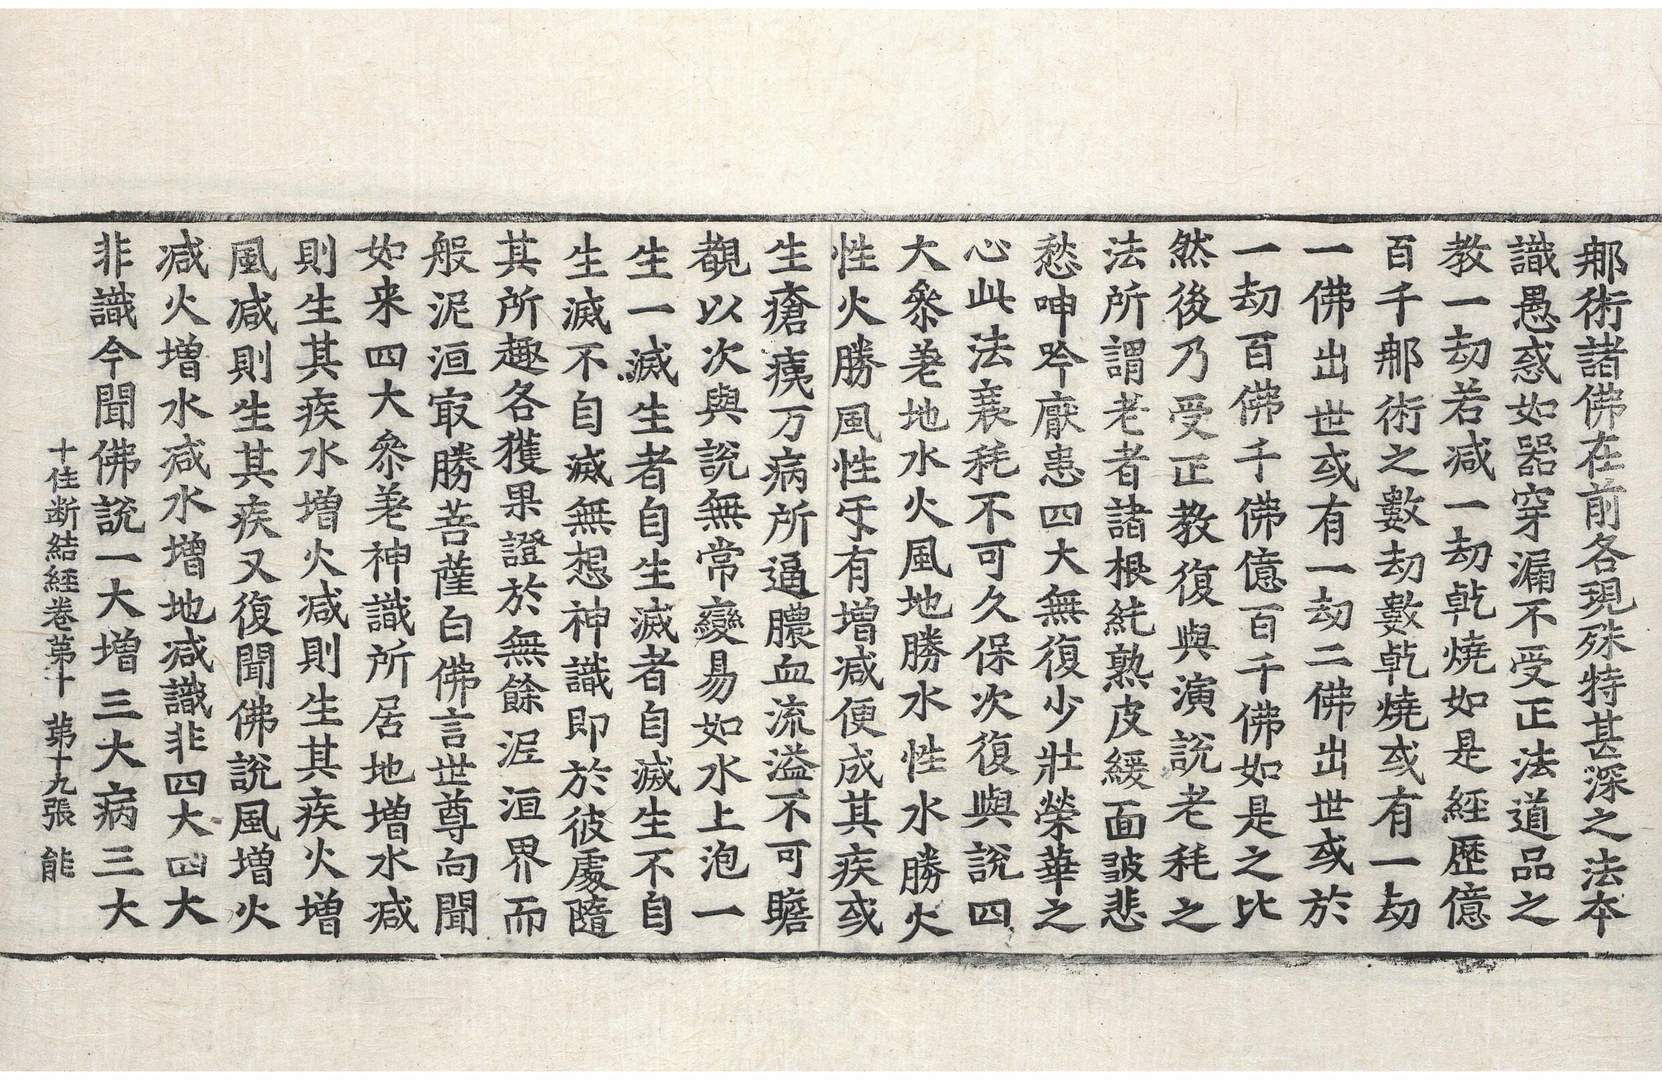 那術諸佛在前各現殊特甚深之法本
識愚惑如器穿漏不受正法道品之
教一劫若减一劫乹燒如是經歷億
百千那術之數劫數乹燒或有一劫
一佛出世或有一劫二佛出世或於
一劫百佛千佛億百千佛如是之比
然後乃受正教復與演說老耗之
法所謂老者諸根純熟皮緩面皺悲
愁呻吟厭患四大無復少壯榮華之
心此法衰耗不可久保次復與說四
大叅差地水火風地勝水性水勝火
性火勝風風性乎有增减便成其疾或
生瘡痍万病所逼膿血流溢不可瞻
覩以次與說無常變易如水上泡一
生一滅生者自生滅者自滅生不自
生滅不自滅無想神識即於彼處隨
其所趣各獲果證於無餘泥洹界而
般泥洹㝡勝菩薩白佛言世尊向聞
如来四大叅差神識所居地增水减
則生其疾水增火减則生其疾火增
風减則生其疾又復聞佛說風增火
减火增水减水增地减識非四大四大
非識今聞佛說一大增三大病三大
十住断結経巻第十　第十九張　能